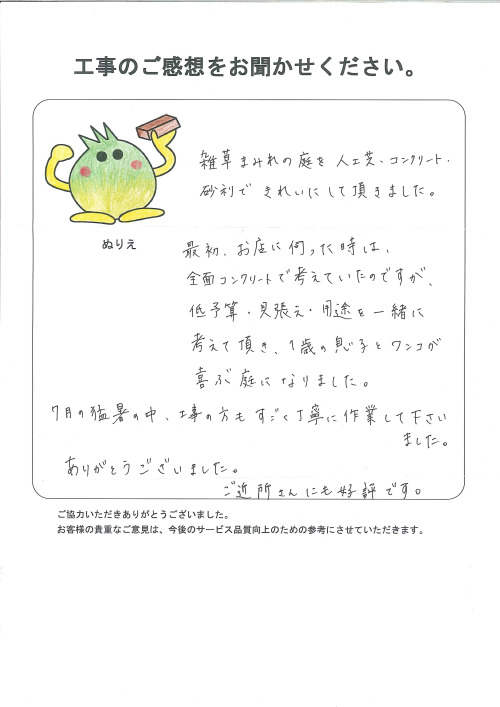 工事のご感想をお聞かせください。
雑草まみれの庭を人工芝、コンクリート・
砂利できれいにして頂きました。
ぬりえ
最初、お店に伺った時は、
全面コンクリートで考えていたのですが、
低予算・見張え・用途を一緒に
考えて頂き、1歳の息子とワンコが
喜ぶ庭になりました。
7月の猛暑の中、工事の方もすごく丁寧に作業して下さい
ました。
ありがとうございました。
ご近所さんにも好評です。
ご協力いただきありがとうございました。
お客様の貴重なご意見は、今後のサービス品質向上のための参考にさせていただきます。